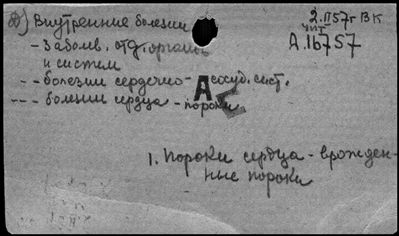 2.II 57г ВК
Внутренние болезни
чит
А.16757
- Заболев. отд. органов
и систем
-- болезни сердечно-сосуд. сист.
--- болезни сердца - пороки
А
С
1. Пороки сердца - врожден-
ные пороки